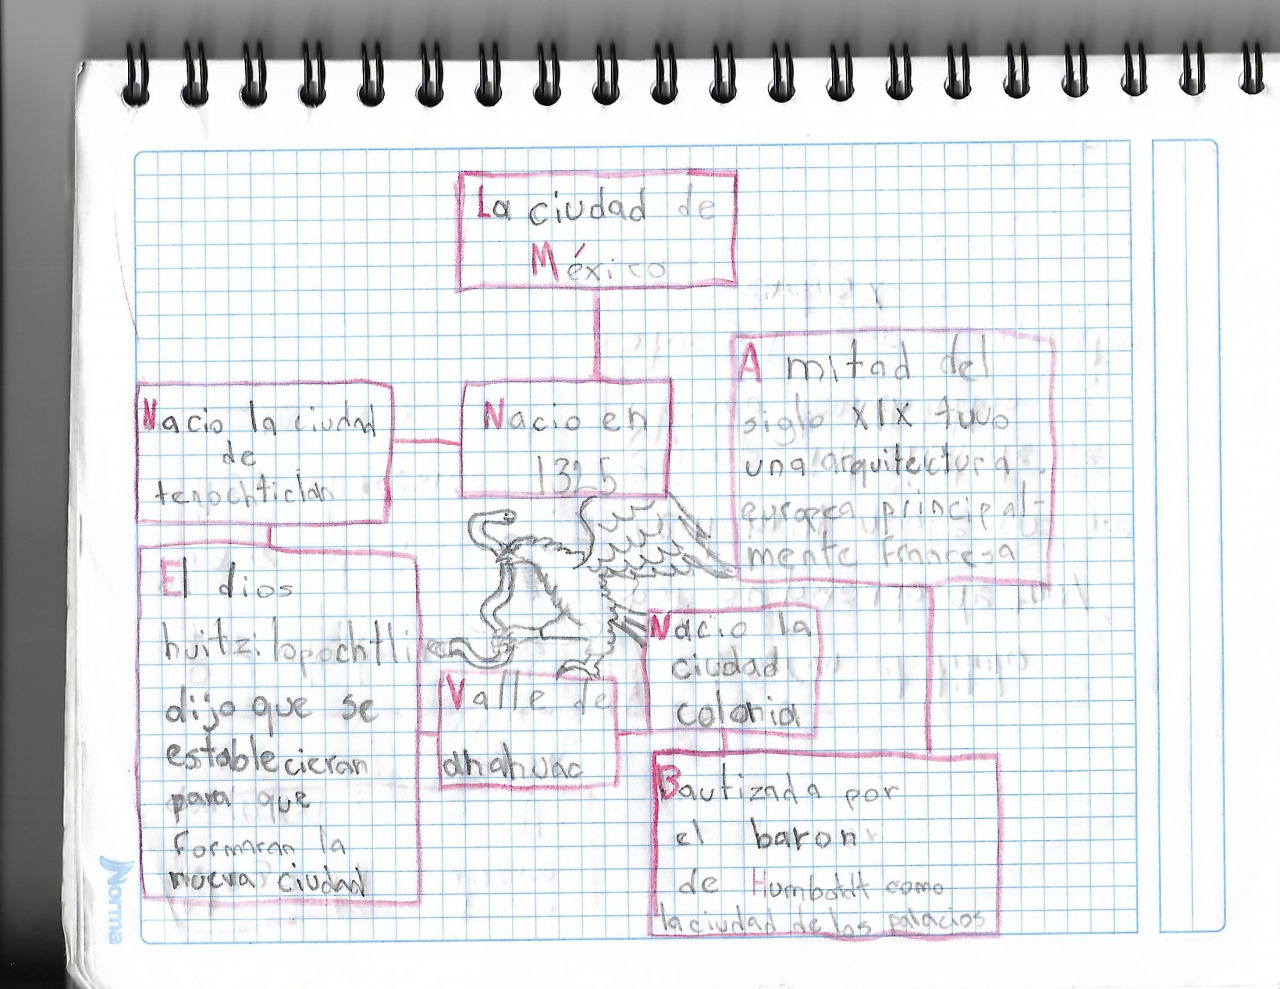 La ciudad de
México
Nacio en
1325
Nacio la ciudad
de
tenochtictan
El dios
huitzilopochtli
dijo que se
establecieran
para que
formaran la
nueva ciudad
Valle de
anahuac
Nacio la
ciudad
colonia
Bautizada por
el baron
de Humboldt como
la ciudad de los palacios
A mitad del
siglo XIX tuvo
una arquitectura
europea principal-
mente francesa
Norma